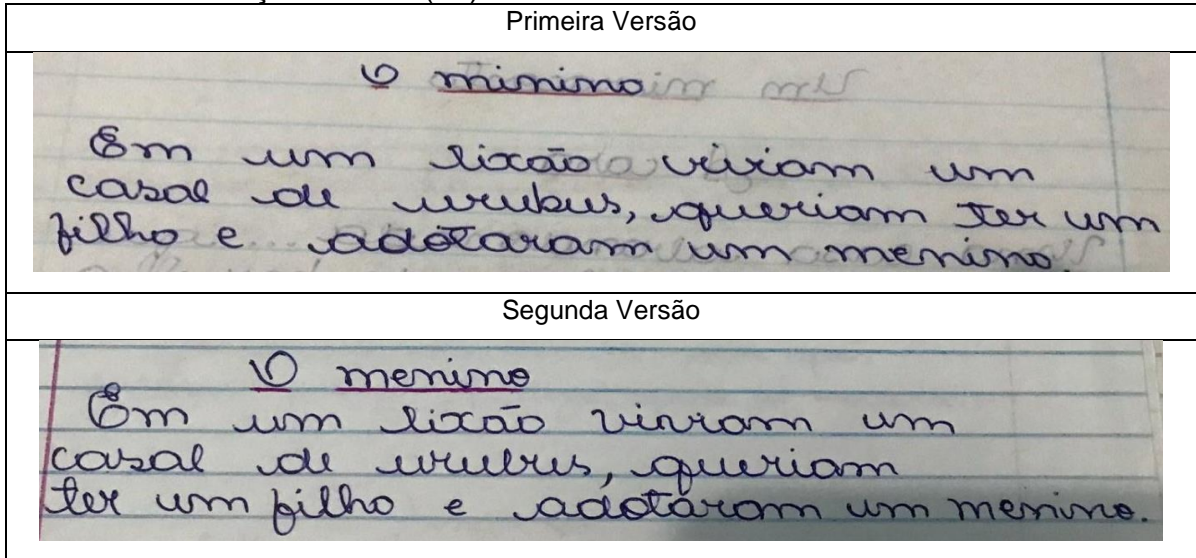 Primeira Versão
O minino
Em um lixão viviam um
casal de urubus, queriam ter um
filho e adotaram um menino.
Segunda Versão
O menino
Em um lixão viviam um
casal de urubus, queriam
ter um filho e adotaram um menino.